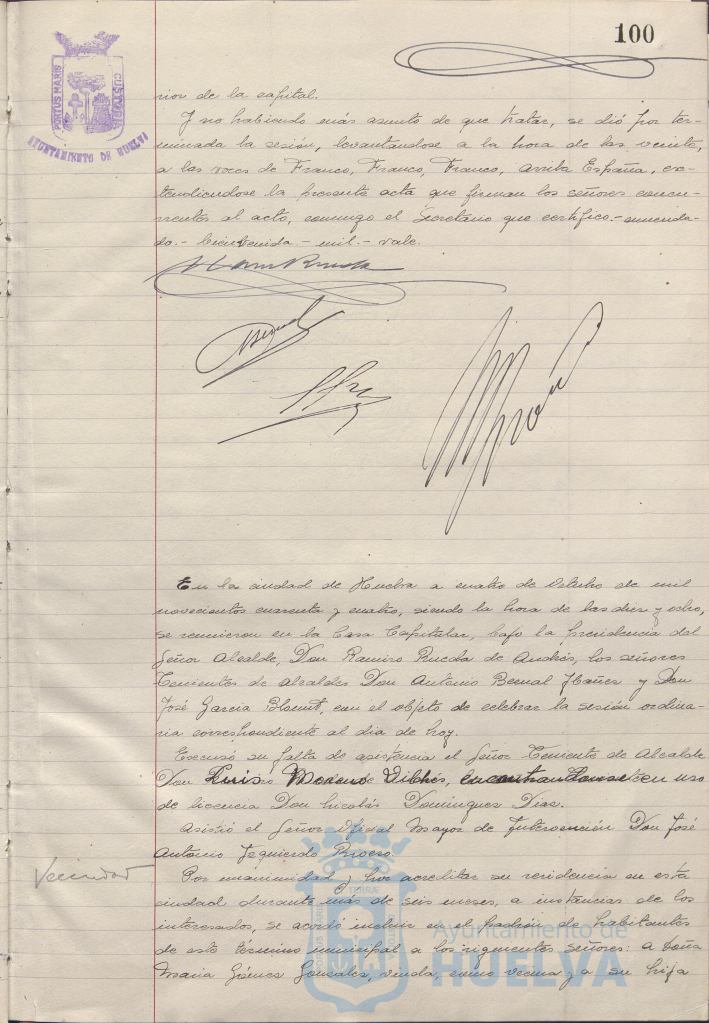 100
PORTUS MARIS CUSTODIA
AYUNTAMIENTO DE HUELVA
rior de la capital.
Y no habiendo más asunto de que tratar, se dió por ter-
minada la sesión, levantandose a la hora de las veinte,
a las voces de Franco, Franco, Franco, Arriba España, ex-
tendiendose la presente acta que firman los señores concu-
rrentes al acto, conmigo el Secretario que certifico.- enmenda-
do.- bienvenida - mil.- vale.
En la ciudad de Huelva a cuatro de Octubre de mil
novecientos cuarenta y cuatro, siendo la hora de las diez y ocho,
se reunieron en la Casa Capitular, bajo la presidencia del
Señor Alcalde, Don Ramiro Rueda de Andrés, los señores
Tenientes de Alcaldes Don Antonio Bernal Ibañez y Don
José Garcia Blount, con el objeto de celebrar la sesión ordina-
ria correspondiente al dia de hoy.
Escusó su falta de asistencia el Señor Teniente de Alcalde
Don Luis Moreno Vilches, encontrandose en uso
de licencia Don Nicolás Dominguez Diaz.
Asistió el Señor Oficial Mayor de Intervención Don José
Antonio Izquierdo
Vecindad
Por unanimidad y por acreditar su residencia en esta
ciudad durante más de seis meses, a instancias de los
interesados, se acordó incluir en el padrón de habitantes
de este término municipal a los siguientes señores: a Doña
Maria Gómez Gonzalez, viuda, como vecina y a su hija
Ayuntamiento de
HUELVA